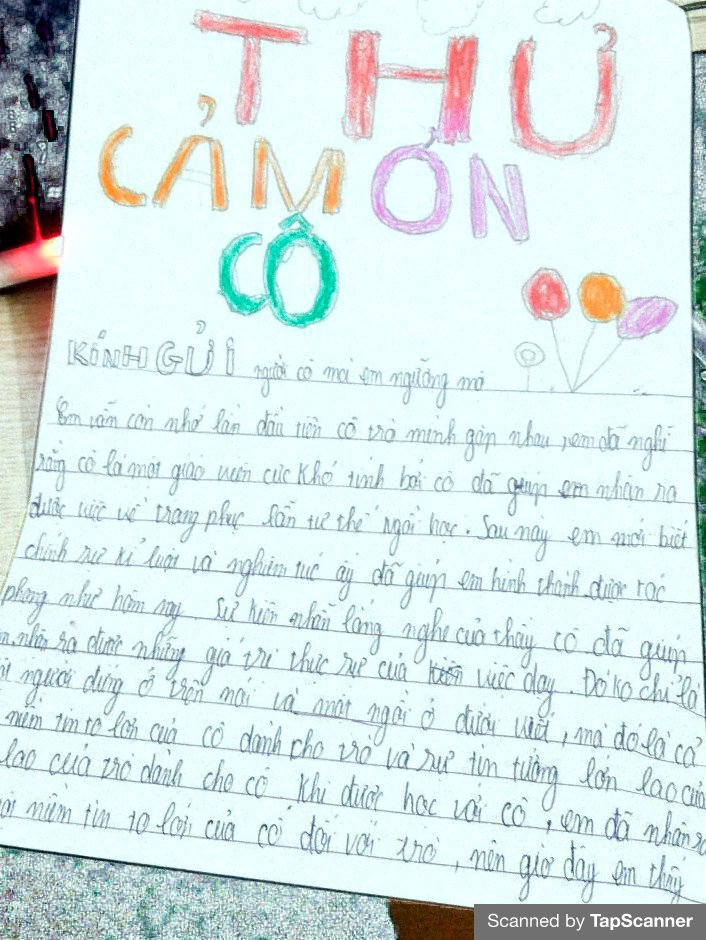 THƯ
CẢM ƠN
CÔ
KÍNH GỬI người cô mà em ngưỡng mộ
Em vẫn còn nhớ lần đầu tiên cô trò mình gặp nhau, em đã nghĩ
rằng cô là một giáo viên cực khó tính bởi cô đã giúp em nhận ra
được việc về trang phục lẫn tư thế ngồi học. Sau này em mới biết
chính sự kỉ luật và nghiêm túc ấy đã giúp em hình thành được tác
phong như hôm nay. Sự kiên nhẫn lắng nghe của thầy cô đã giúp
nhận ra được những giá trị thực sự của việc dạy. Đó ko chỉ là
người đứng ở trên nói và một ngồi ở dưới viết, mà đó là cả
niềm tin to lớn của cô dành cho trò và sự tin tưởng lớn lao của
lao của trò dành cho cô. Khi được học với cô, em đã nhận ra
niềm tin to lớn của cô đối với trò, nên giờ đây em thấy
Scanned by TapScanner